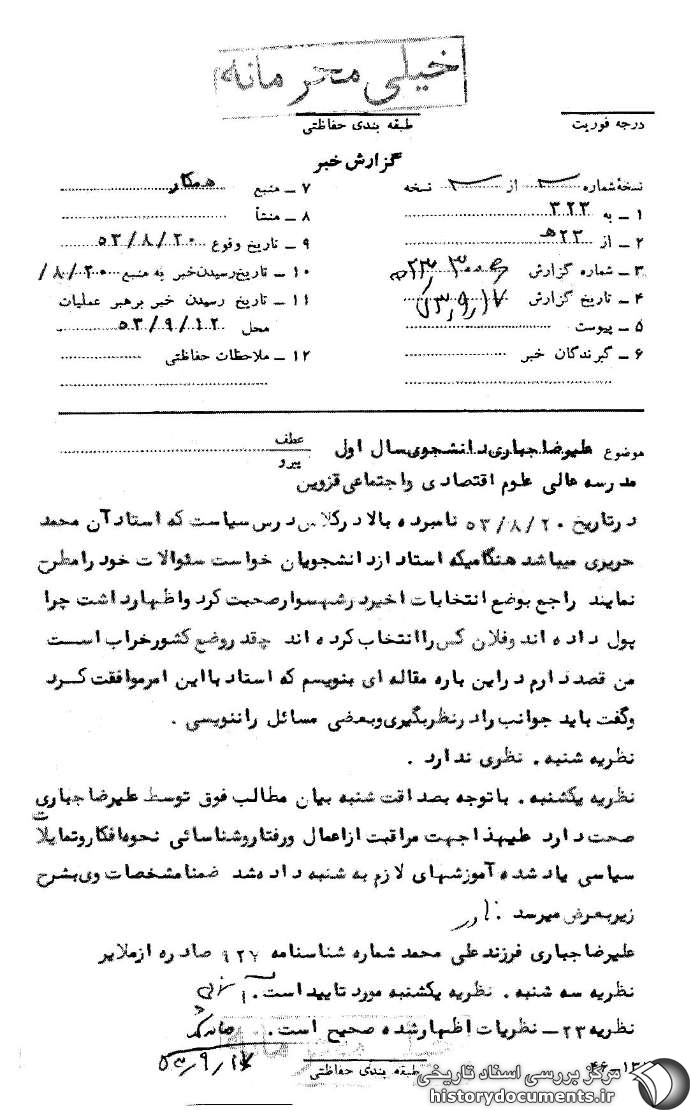 خیلی محرمانه
درجه فوریت
طبقه بندی حفاظتی
گزارش خبر
نسخهٔ شماره از نسخه
۱ ـ به ۳۲۳
۲ ـ از ۲۳ هـ
۳ ـ شماره گزارش
۴ ـ تاریخ گزارش ۵۳٫۹٫۱۷
۵ ـ پیوست
۶ ـ گیرندگان خبر
۷ ـ منبع همکار
۸ ـ منشأ
۹ ـ تاریخ وقوع ۵۳/۸/۲۰
۱۰ ـ تاریخ رسیدن خبر به منبع ۸/۲۰/
۱۱ ـ تاریخ رسیدن خبر برهبر عملیات
محل ۵۳/۹/۱۲
۱۲ ـ ملاحظات حفاظتی
موضوع علیرضا جباری دانشجوی سال اول
عطف
پیرو
مدرسه عالی علوم اقتصادی واجتماعی قزوین
درتاریخ ۵۳/۸/۲۰ نامبرده بالا درکلاس درس سیاست که استاد آن محمد
حریری میباشد هنگامیکه استاد ازدانشجویان خواست سئوالات خود رامطرح
نمایند راجع بوضع انتخابات اخیر درشهسوار صحبت کرد واظهارداشت چرا
پول داده اند وفلان کس را انتخاب کرده اند چقدر وضع کشور خراب است
من قصد دارم دراین باره مقاله ای بنویسم که استاد با این امرموافقت کرد
وگفت باید جوانب رادرنظربگیری وبعضی مسائل راننویسی .
نظریه شنبه . نظری ندارد .
نظریه یکشنبه . باتوجه بصداقت شنبه بیان مطالب فوق توسط علیرضا جباری
صحت دارد علیهذا جهت مراقبت ازاعمال ورفتاروشناسائی نحوه افکاروتمایلات
سیاسی یاد شده آموزشهای لازم به شنبه داده شد ضمنا مشخصات وی بشرح
زیربعرض میرسد :
علیرضا جباری فرزند علی محمد شماره شناسنامه ۹۲۷ صادره ازملایر
نظریه سه شنبه . نظریه یکشنبه مورد تایید است .
نظریه ۲۳ ـ نظریات اظهارشده صحیح است .
۵۳٫۹٫۱۷
طبقه بندی حفاظتی
۱۳ـ۴۶
مرکز بررسی اسناد تاریخی
historydocuments.ir